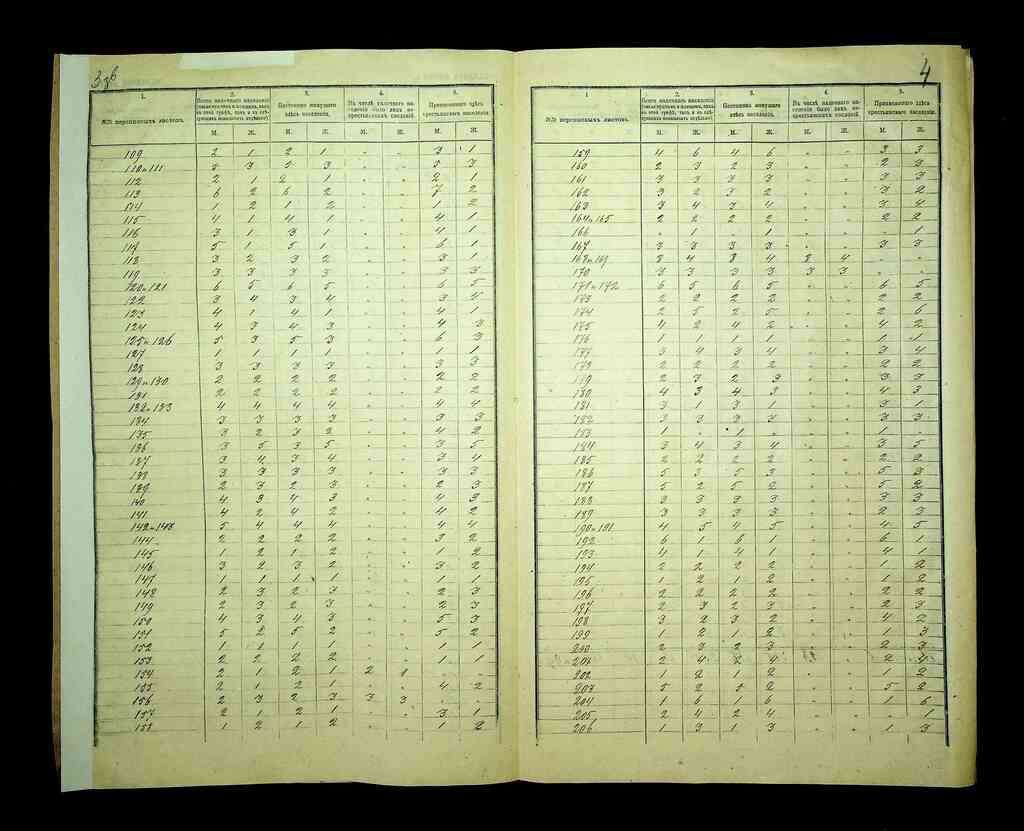 3 зб
1. 2. 3. 4. 5.
№№ переписныхъ листовъ.
Постоянно живущаго здѣсь населенія.
Приписаннаго здѣсь крестьянскаго населенія.
М. Ж. М. Ж. М. Ж. М. Ж.
109 2 1 2 1 . . 3 1
110 и 111 3 3 3 3 . . 3 3
112 2 1 2 1 . . 2 1
113 6 2 6 2 . . 7 2
114 1 2 1 2 . . 1 2
115 4 1 4 1 . . 4 1
116 3 1 3 1 . . 4 1
117 5 1 5 1 . . 6 1
118 3 2 3 2 . . 3 1
119 3 3 3 3 . . 3 3
120 и 121 6 5 6 5 . . 6 5
122 3 4 3 4 . . 3 4
123 4 1 4 1 . . 4 1
124 4 3 4 3 . . 4 3
125 и 126 5 3 5 3 . . 6 3
127 1 1 1 1 . . 1 1
128 3 3 3 3 . . 3 3
129 и 130 2 2 2 2 . . 2 2
131 2 2 2 2 . . 2 2
132 и 133 4 4 4 4 . . 4 4
134 3 3 3 3 . . 3 3
135 3 2 3 2 . . 4 2
136 3 5 3 5 . . 3 5
137 3 4 3 4 . . 3 4
138 3 3 3 3 . . 3 3
139 2 3 2 3 . . 2 3
140 4 3 4 3 . . 4 3
141 4 2 4 2 . . 4 2
142 и 143 5 4 4 4 . . 4 4
144 2 2 2 2 . . 3 2
145 1 2 1 2 . . 1 2
146 3 2 3 2 . . 3 2
147 1 1 1 1 . . 1 1
148 2 3 2 3 . . 2 3
149 2 3 2 3 . . 2 3
150 4 3 4 3 . . 5 3
151 5 2 5 2 . . 5 2
152 1 1 1 1 . . 1 1
153 2 2 2 2 . . 1 1
154 2 1 2 1 2 1 . .
155 2 1 2 1 . . 4 2
156 2 3 2 3 3 3 . .
157 2 1 2 1 . . 3 1
158 1 2 1 2 . . 1 2
4
1 2. 3. 4. 5.
№№ переписныхъ листовъ.
Постоянно живущаго здѣсь населенія.
Приписаннаго здѣсь крестьянскаго населенія.
М. Ж. М. Ж. М. Ж. М. Ж.
159 4 6 4 6 . . 3 3
160 2 3 2 3 . . 2 3
161 3 3 3 3 . . 3 3
162 3 2 3 2 . . 3 2
163 3 4 3 4 . . 3 4
164 и 165 2 2 2 2 . . 2 2
166 . 1 . 1 . . . 1
167 3 3 3 3 . . 3 3
168 и 169 8 4 8 4 8 4 . .
170 3 3 3 3 3 3 . .
171 и 172 6 5 6 5 . . 6 5
173 2 2 2 2 . . 2 2
174 2 5 2 5 . . 2 6
175 4 2 4 2 . . 4 2
176 1 1 1 1 . . 1 1
177 3 4 3 4 . . 3 4
178 2 2 2 2 . . 2 2
179 2 3 2 3 . . 3 3
180 4 3 4 3 . . 4 3
181 3 1 3 1 . . 3 1
182 3 3 3 3 . . 3 3
183 1 . 1 . . . 1 .
184 3 4 3 4 . . 3 5
185 2 2 2 2 . . 2 2
186 5 3 5 3 . . 5 3
187 5 2 5 2 . . 5 2
188 3 3 3 3 . . 3 3
189 3 3 3 3 . . 2 3
190 и 191 4 5 4 5 . . 4 5
192 6 1 6 1 . . 6 1
193 4 1 4 1 . . 4 1
194 2 2 2 2 . . 1 2
195 1 2 1 2 . . 1 2
196 2 2 2 2 . . 2 2
197 2 3 2 3 . . 2 3
198 3 2 3 2 . . 4 2
199 1 2 1 2 . . 1 3
200 2 3 2 3 . . 2 3
201 2 4 2 4 . 2 4
202 1 2 1 2 . . 1 2
203 5 2 5 2 . . 5 2
204 1 6 1 6 . . 1 6
205 2 4 2 4 . . . 1
206 1 3 1 3 . . 1 3